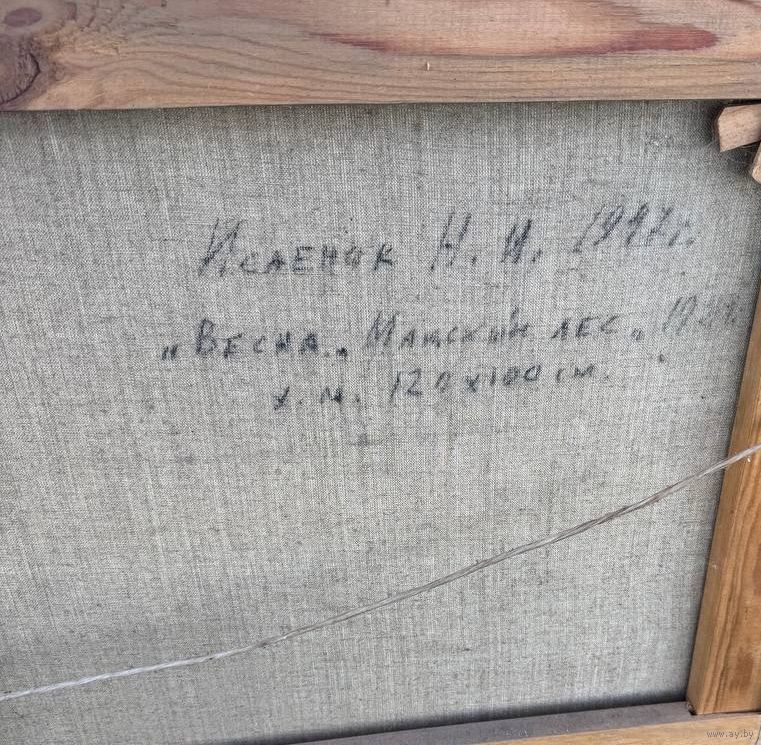 Исаенок Н. И. 1997г.
„Весна„ Майский лес„
х. м. 120х100 см.
www.ay.by